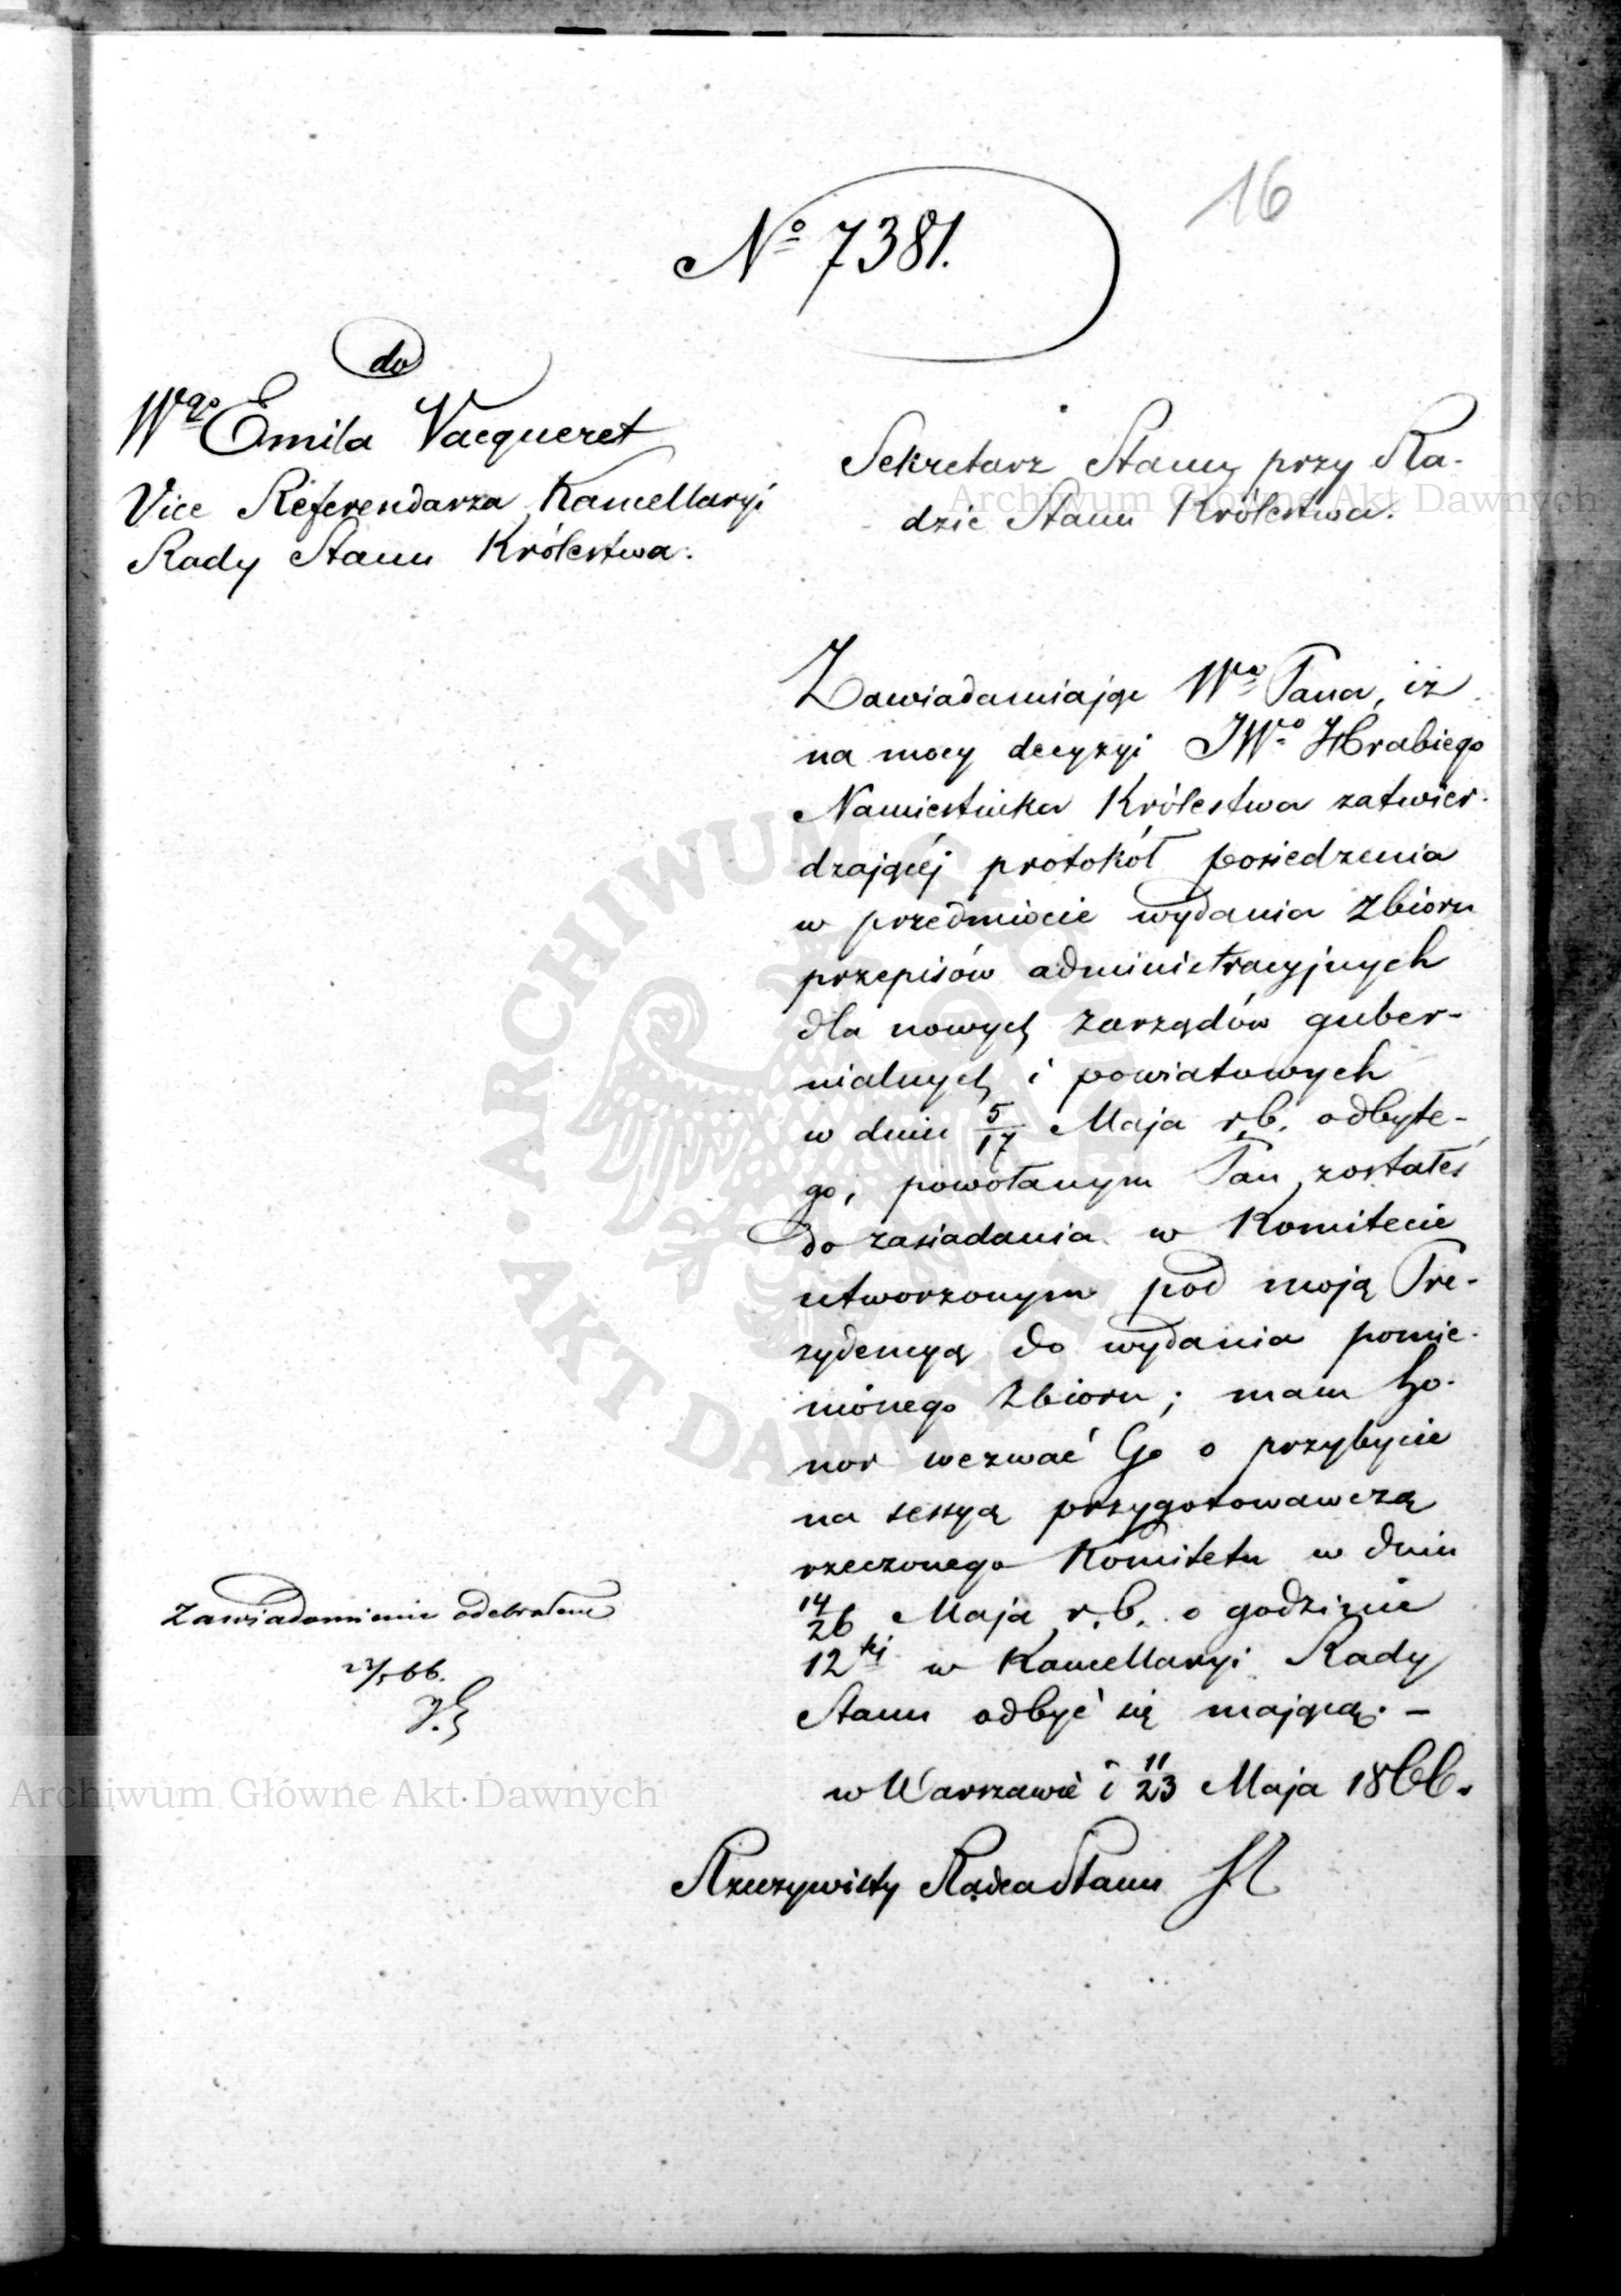 16
№ 7381.
do
Wgo Emila Vacqueret
Vice Referendarza Kancellaryi
Rady Stanu Królestwa.
Sekretarz Stanu przy Ra-
dzie Stanu Królestwa.
Zawiadamiając Wo Pana, iż
na mocy decyzyi JWo Hrabiego
Namiestnika Królestwa zatwier-
dzającéj protokół posiedzenia
w przedmiocie wydania Zbioru
przepisów administracyjnych
dla nowych zarządów guber-
nialnych i powiatowych
w dniu 5/17 Maja r.b. odbyte-
go, powołanym Pan zostałeś
do zasiadania w Komitecie
utworzonym pod moją Pre-
zydencyą do wydania pomie-
nionego Zbioru; mam ho-
nor wezwać Go o przybycie
na sessyą przygotowawczą
rzeczonego Komitetu w dniu
14/26 Maja r.b. o godzinie
12téj w Kancellaryi Rady
Stanu odbyć się mającą. –
w Warszawie d 11/23 Maja 1866.
Rzeczywisty Radca Stanu
Zawiadomienie odebrałem
66.
Archiwum Główne Akt Dawnych
ARCHIWUM GŁÓWNE AKT DAWNYCH
Archiwum Główne Akt Dawnych